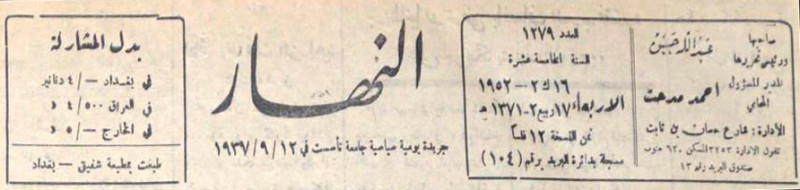 صاحبها
ورئيس تحريرها
عبدالله حسين
المدير المسؤول
المحامي
احمد مدحت
الأدارة : شارع حسان بن ثابت
تلفون الادارة ٣٢٥٣ المسكن ٦٢٠ جنوب
صندوق البريد رقم ١٣
العدد ١٢٧٩
السنة الخامسة عشرة
الاربعاء
١٦ ك٢ – ١٩٥٢
١٧ ربيع٢–١٣٧١ هـ
ثمن النسخة ١٢ فلساً
مسجلة بدائرة البريد برقم (١٠٤)
النهار
جريدة يومية سياسية جامعة تأسست في ١٢ / ٩ / ١٩٣٧
بدل المشاركة
في بغداد –/٤ دنانير
في العراق ٤/٥٠٠ »
في الخارج –/٥ »
طبعت بمطبعة شفيق – بغداد